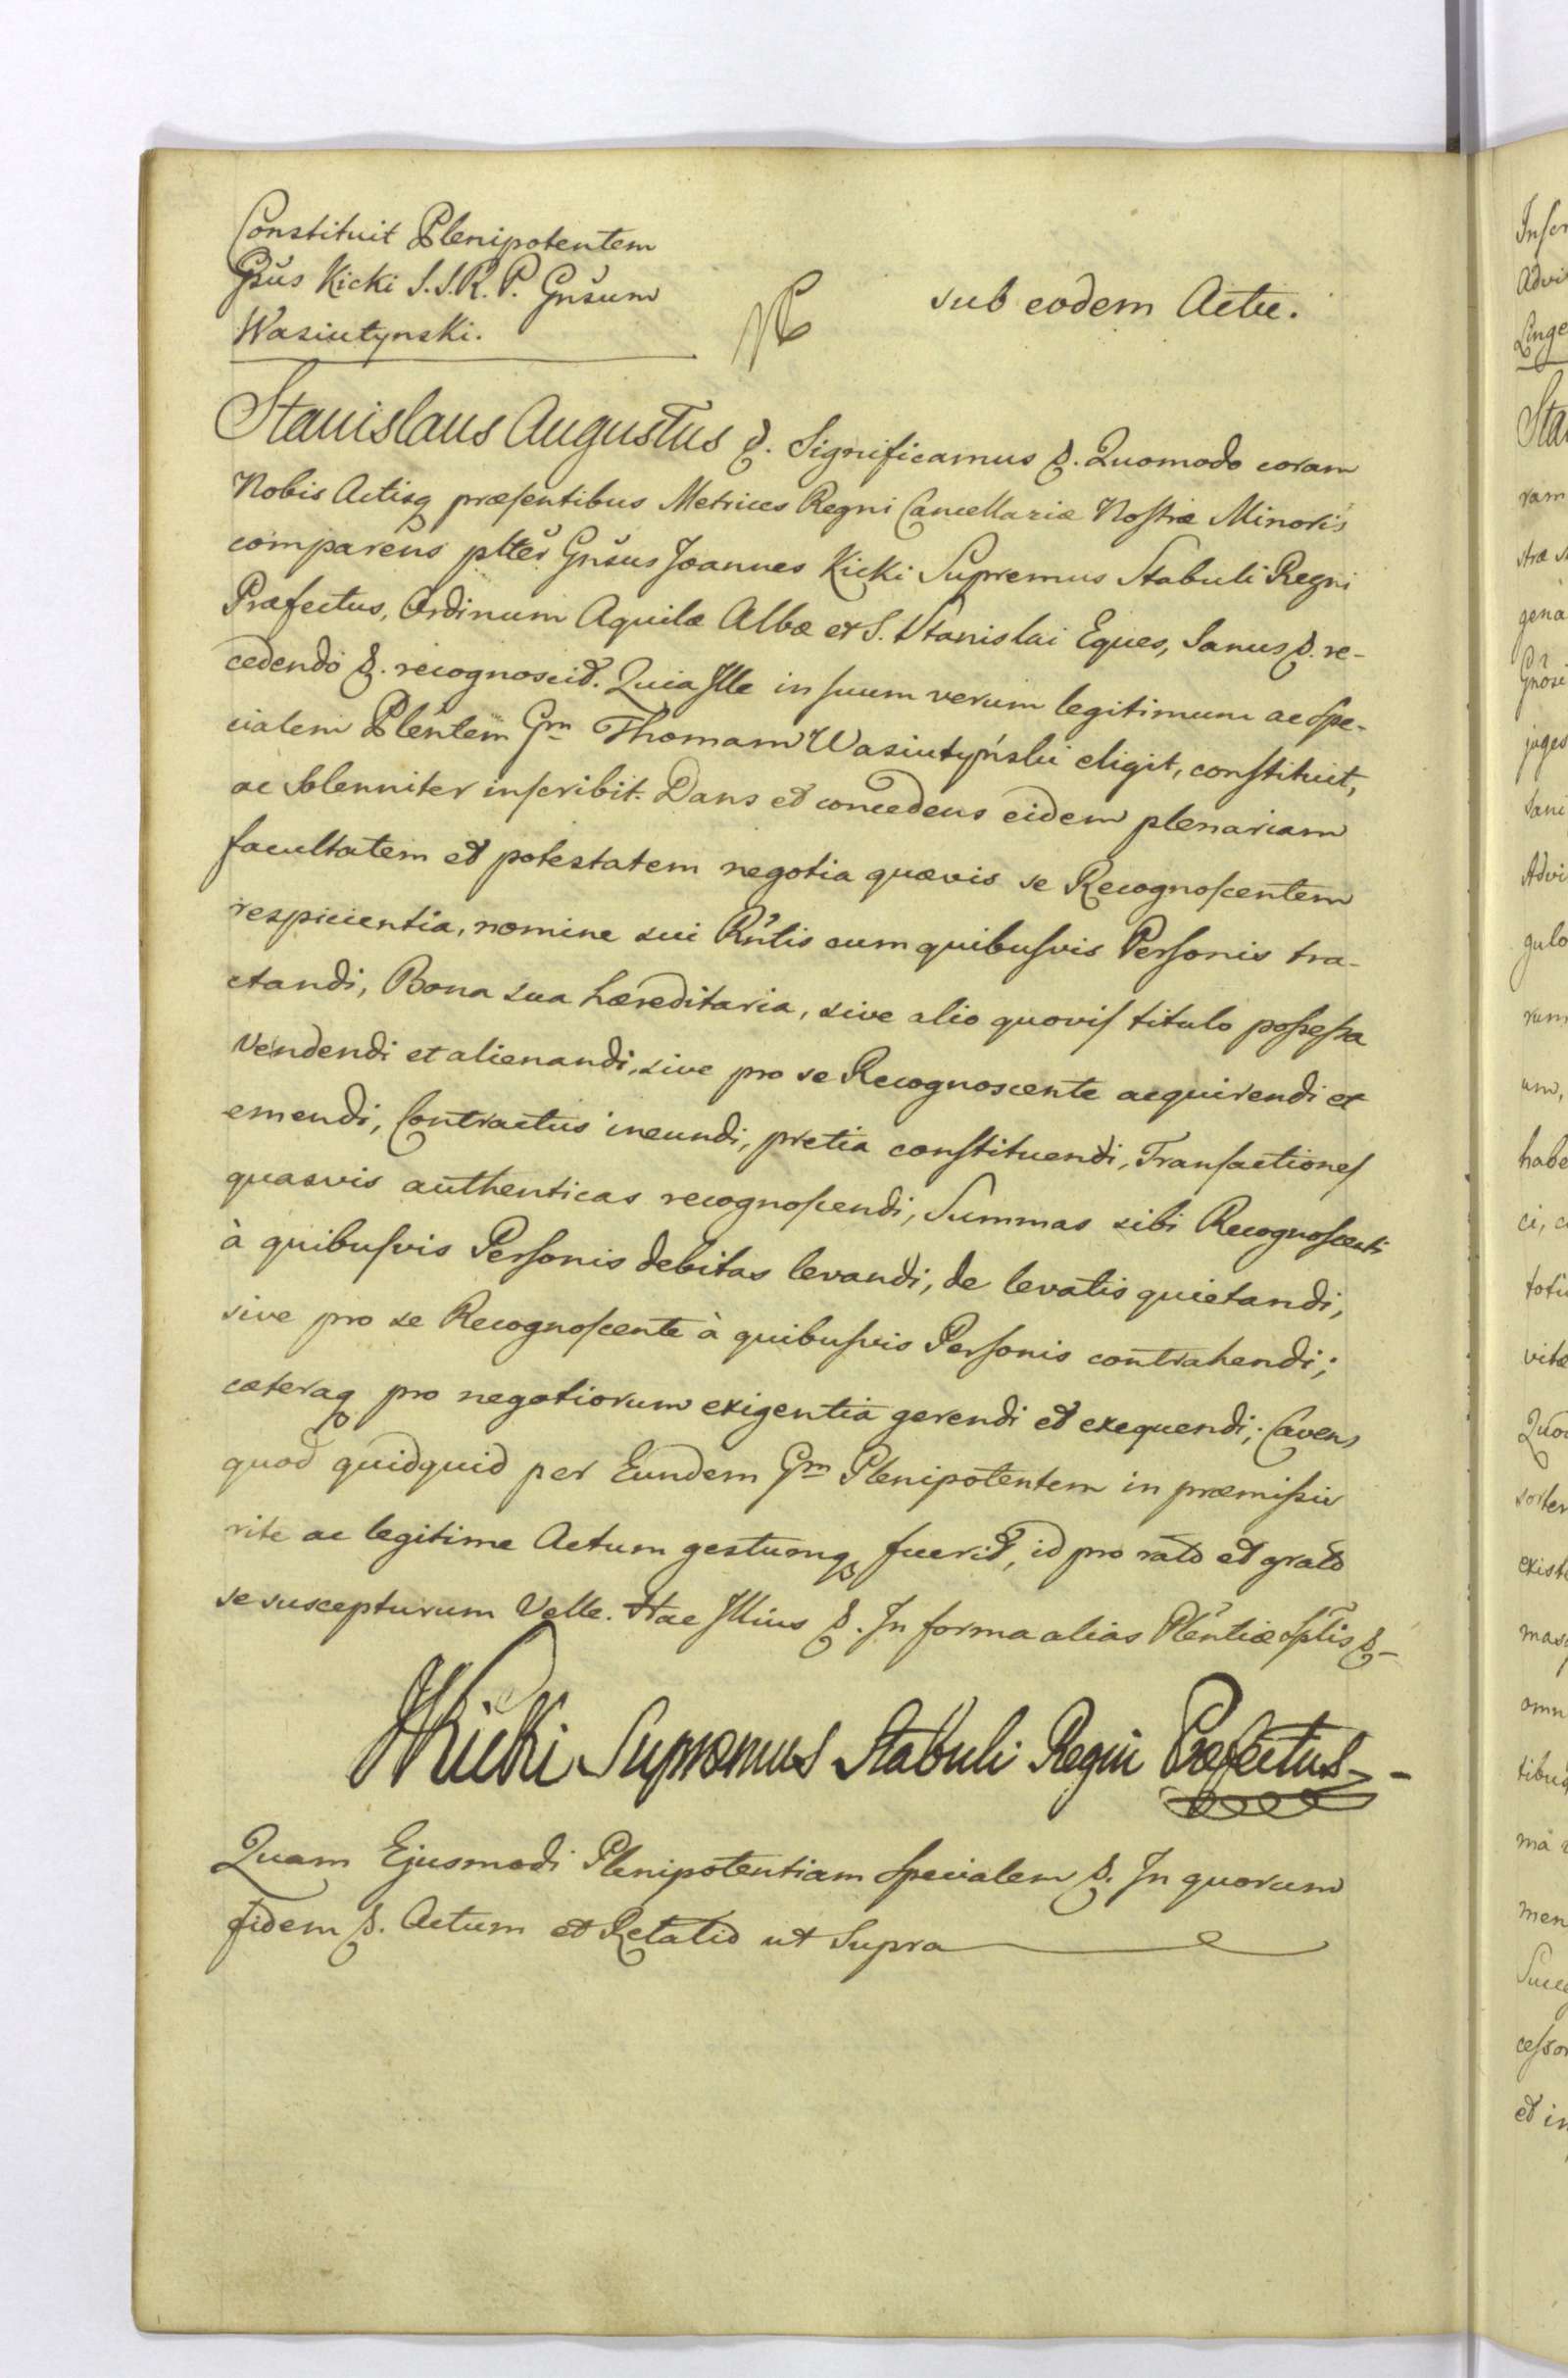 Constituit Plenipotentem
Gsus Kicki S.S.R.P. Gnsum
Wasiutynski.
sub eodem Actu.
Stanislaus Augustus &. Significamus &. Quomodo coram
Nobis Actisq præsentibus Metrices Regni Cancellariæ Nostræ Minoris
comparens plter Gnsus Joannes Kicki Supremus Stabuli Regni
Præfectus, Ordinum Aquilæ Albæ et S. Stanislai Eques, Sanus &. re-
cedendo &. recognoscit. Quia Ille in suum verum legitimum ac spe-
cialem Plentem Gm Thomam Wasiutyński eligit, constituit,
ac Solenniter inscribit. Dans et concedens eidem plenariam
facultatem et potestatem negotia quævis se Recognoscentem
respicientia, nomine sui Rntis cum quibusvis Personis tra-
ctandi, Bona sua hæreditaria, sive alio quovis titulo possessa
Vendendi et alienandi, sive pro se Recognoscente acquirendi et
emendi, Contractus ineundi, pretia constituendi, Transactiones
quasvis authenticas recognoscendi, Summas sibi Recognoscenti
à quibusvis Personis debitas levandi, de levatis quietandi,
sive pro se Recognoscente à quibusvis Personis contrahendi;
cæteraq pro negotiorum exigentia gerendi et exequendi; Cavens
quod quidquid per Eundem Gm Plenipotentem in præmissis
rite ac legitime Actum gestumq fuerit, id pro rato et grato
se suscepturum Velle. Hac Illius &. In forma alias Plentiæ sptis &-
JKicki Supremus Stabuli Regni Præfectus--
Quam Ejusmodi Plenipotentiam Specialem &. In quorum
fidem &. Actum et Relatio ut Supra